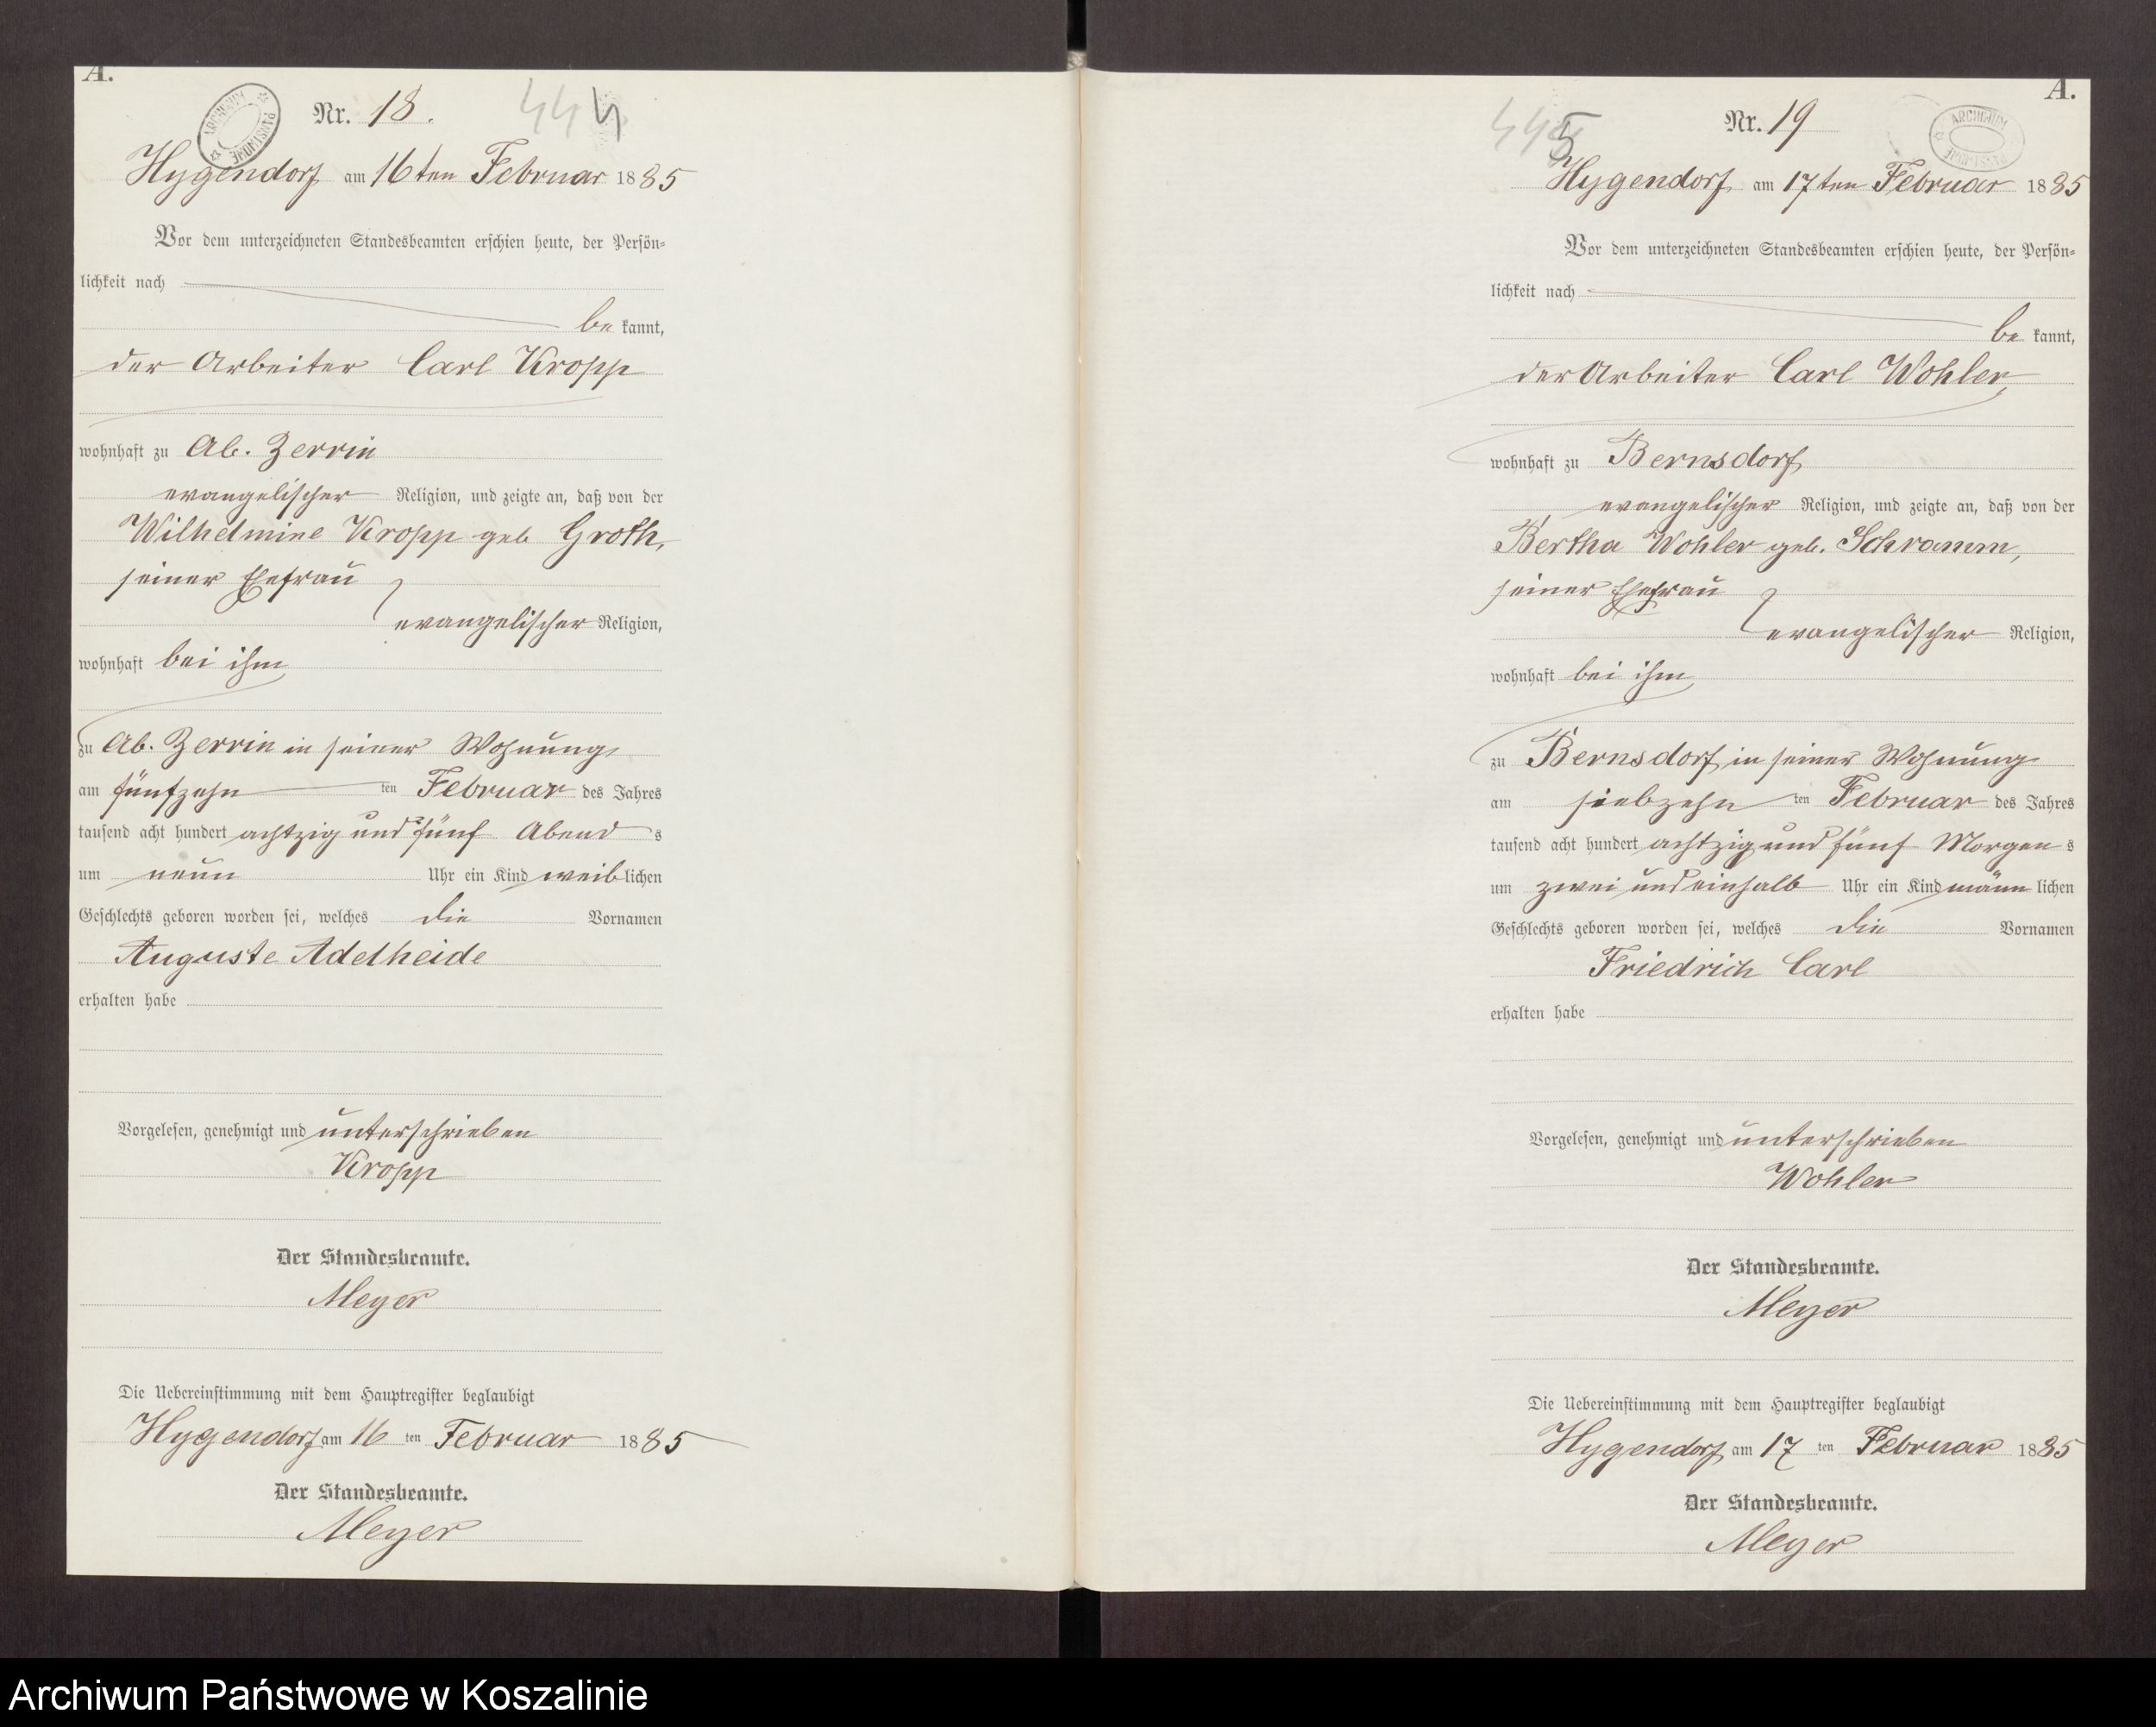 A.
Nr. 18.
444
Hygendorf am 16ten Februar 1885
Vor dem unterzeichneten Standesbeamten erschien heute, der Persön-
lichkeit nach
bekannt,
der Arbeiter Carl Kropp
wohnhaft zu Ab. Zerrin
evangelischer Religion, und zeigte an, daß von der
Wilhelmine Kropp geb Groth,
seiner Ehefrau
evangelischer Religion,
wohnhaft bei ihm
zu Ab. Zerrin in seiner Wohnung,
am fünfzehn ten Februar des Jahres
tausend acht hundert achtzig und fünf Abend s
um neun Uhr ein Kind weiblichen
Geschlechts geboren worden sei, welches die Vornamen
Auguste Adelheide
erhalten habe
Vorgelesen, genehmigt und unterschrieben
Kropp
Der Standesbeamte.
Meyer
Die Uebereinstimmung mit dem Hauptregister beglaubigt
Hygendorf am 16 ten Februar 1885
Der Standesbeamte.
Meyer
A.
445
Nr. 19
ARCHIWUM PAŃSTWOWE
Hygendorf am 17ten Februar 1885
Vor dem unterzeichneten Standesbeamten erschien heute, der Persön-
lichkeit nach
bekannt,
der Arbeiter Carl Wohler,
wohnhaft zu Bernsdorf
evangelischer Religion, und zeigte an, daß von der
Bertha Wohler geb. Schramm,
seiner Ehefrau
evangelischer Religion,
wohnhaft bei ihm
zu Bernsdorf in seiner Wohnung
am siebzehn ten Februar des Jahres
tausend acht hundert achtzig und fünf Morgen s
um zwei und einhalb Uhr ein Kind männlichen
Geschlechts geboren worden sei, welches die Vornamen
Friedrich Carl
erhalten habe
Vorgelesen, genehmigt und unterschrieben
Wohler
Der Standesbeamte.
Meyer
Die Uebereinstimmung mit dem Hauptregister beglaubigt
Hygendorf am 17 ten Februar 1885
Der Standesbeamte.
Meyer
Archiwum Państwowe w Koszalinie